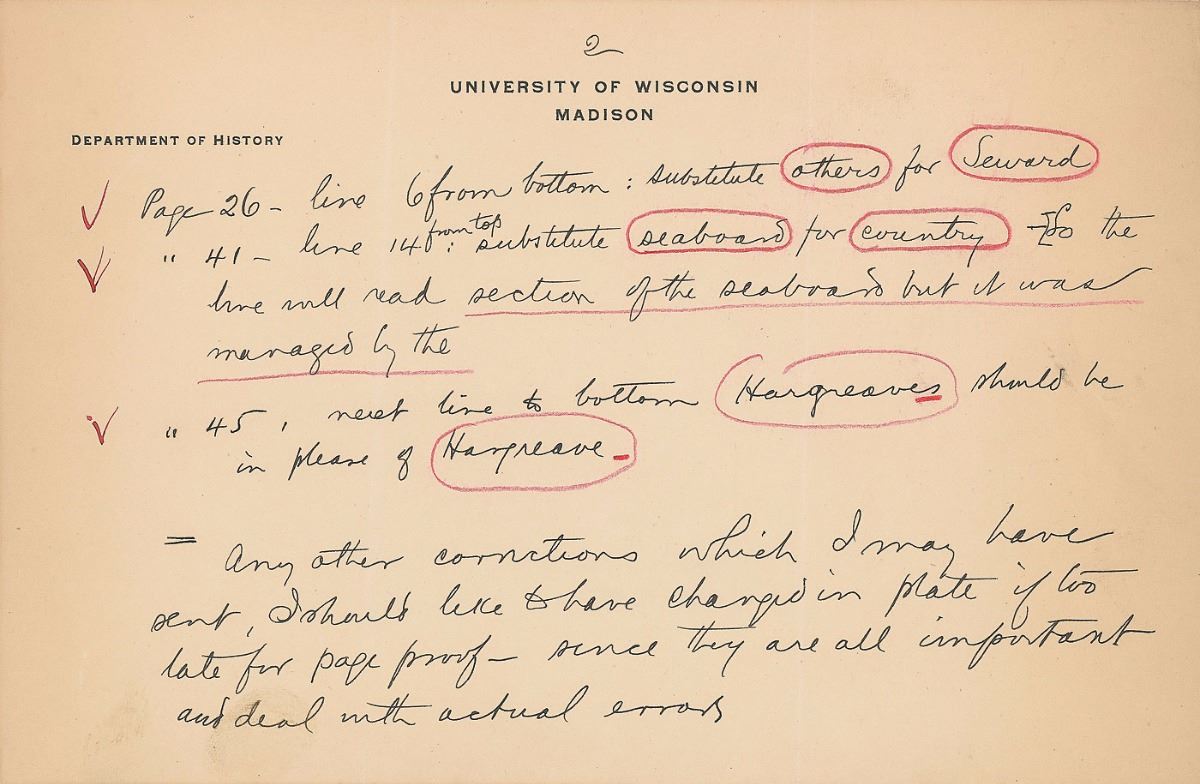 2
UNIVERSITY OF WISCONSIN
MADISON
DEPARTMENT OF HISTORY
Page 26 – line 6 from bottom : substitute others for Seward
" 41 – line 14 from top : substitute seaboard for country So the
line will read section of the seaboard but it was
managed by the
" 45, next line to bottom Hargreaves should be
in please of Hargreave
= Any other corrections which I may have
sent, I should like to have changed in plate if too
late for page proof – since they are all important
and deal with actual errors